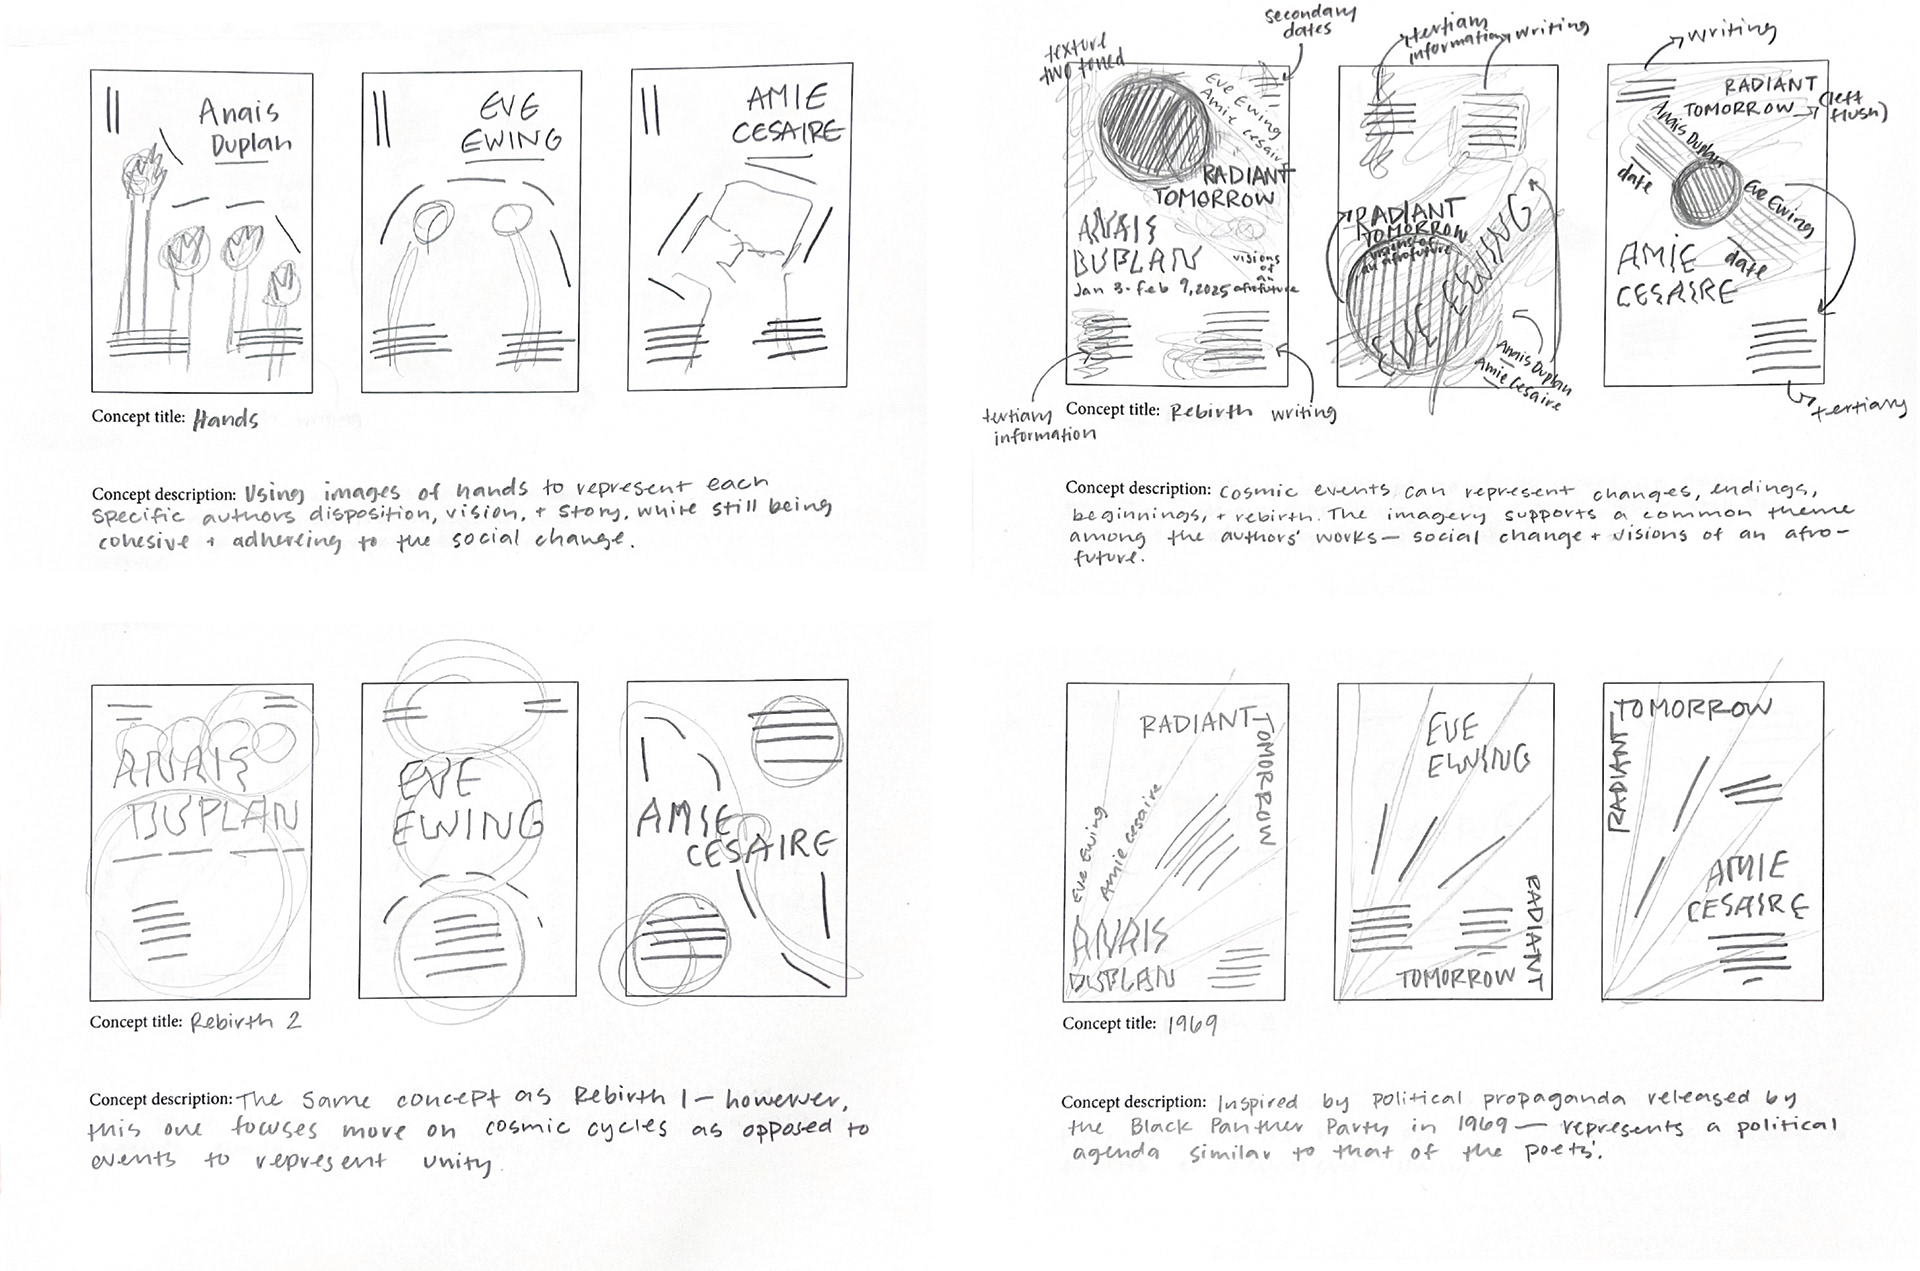 Anais
Duplan
EVE
EWING
AMIE
CESAIRE
Concept title: Hands
Concept description: Using images of hands to represent each
specific authors disposition, vision, + story, while still being
cohesive + adhereing to the social change.
texture
two toned
secondary
dates
Eve Ewing
Amie Cesaire
RADIANT
TOMORROW
ANAIS
DUPLAN
Jan 3 - Feb 9, 2025
visions
of
an
afrofuture
tertiary
information
writing
tertiary
information
writing
RADIANT
TOMORROW
visions of
an afrofuture
EVE EWING
Anais Duplan
Amie Cesaire
writing
RADIANT
TOMORROW
(left
flush)
Anais Duplan
date
Eve Ewing
date
AMIE
CESAIRE
tertiary
Concept title: Rebirth
Concept description: cosmic events can represent changes, endings,
beginnings, + rebirth. The imagery supports a common theme
among the authors' works— social change + visions of an afro-
future.
ANAIS
DUPLAN
EVE
EWING
AMIE
CESAIRE
Concept title: Rebirth 2
Concept description: The same concept as Rebirth 1 — however,
this one focuses more on cosmic cycles as opposed to
events to represent unity.
RADIANT
TOMORROW
Eve Ewing
Amie Cesaire
ANAIS
DUPLAN
EVE
EWING
RADIANT
TOMORROW
TOMORROW
RADIANT
AMIE
CESAIRE
Concept title: 1969
Concept description: Inspired by political propaganda released by
the Black Panther Party in 1969 — represents a political
agenda similar to that of the poets'.